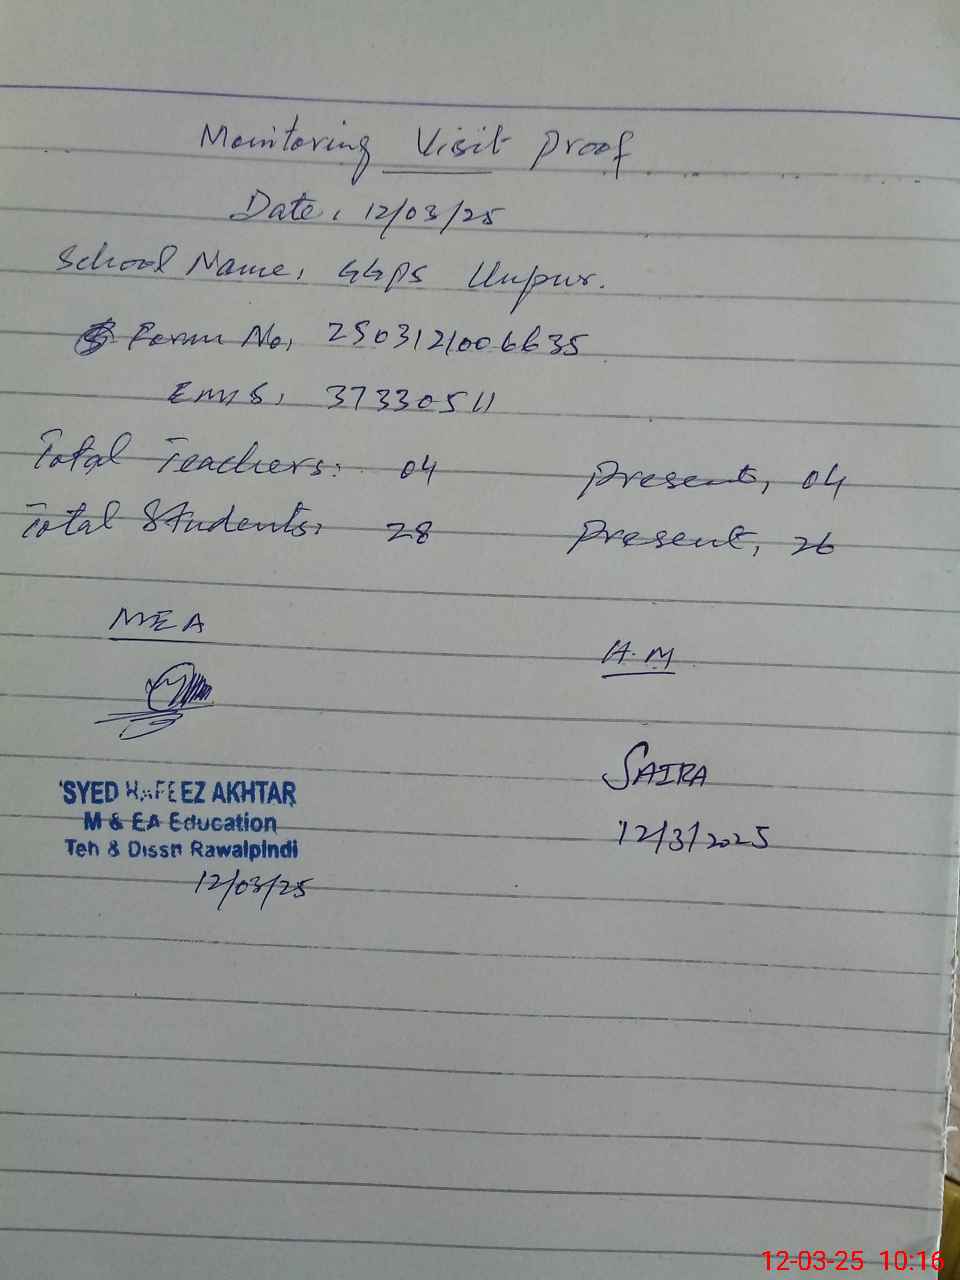 Monitoring Visit Proof
Date: 12/03/25
School Name: GGPS
Form No, 2503121006635
EMIS, 37330511
Total Teachers: 04 Present, 04
Total Students: 28 Present, 26
MEA
H.M
SAIRA
12/3/2025
SYED HAFEEZ AKHTAR
M & EA Education
Teh & Disstt Rawalpindi
12/03/25
12-03-25 10:16